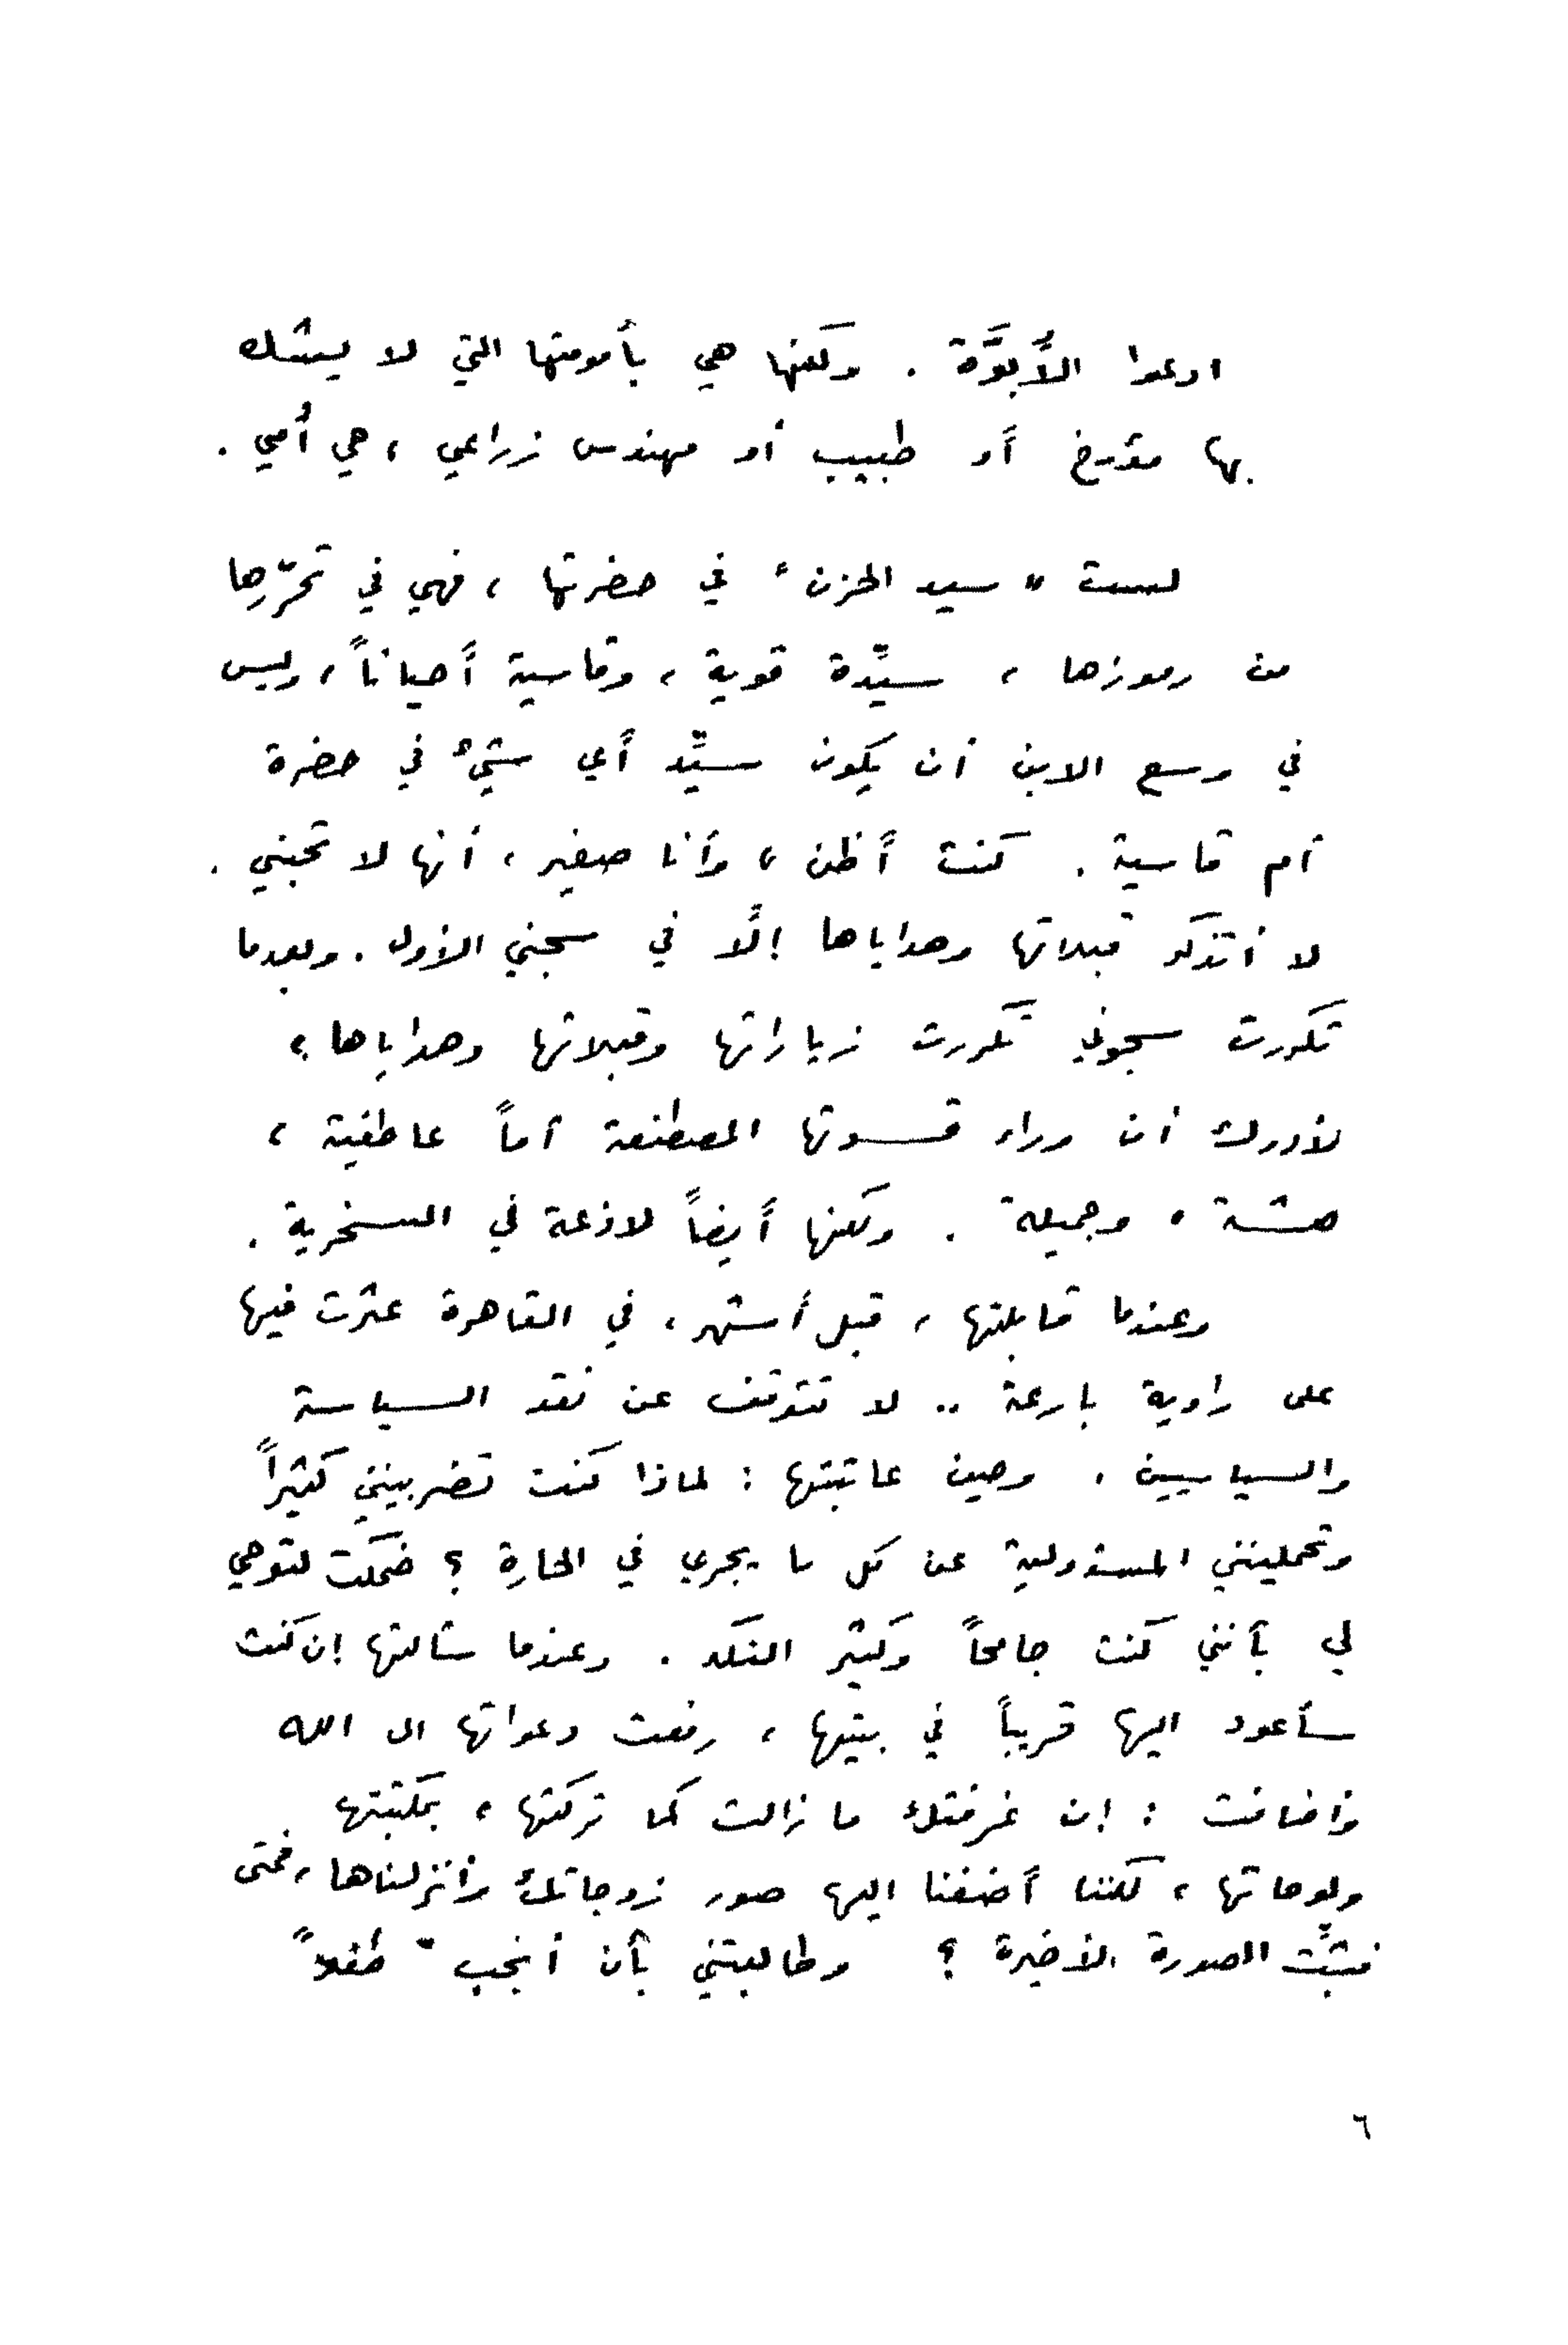 ادعوا الأُبوَّة . ولكنها هي بأمومتها التي لا يشك
بها مؤرخ أو طبيب أو مهندس زراعي ، هي أُمي .
لست " سيد الحزن " في حضرتها ، فهي في تحرّرها
من رموزها ، سيِّدة قوية ، وقاسية أحياناً ، وليس
في وسع الابن أن يكون سيِّد أي شيء في حضرة
أم قاسية . كنت أظن ، وأنا صغير ، أنها لا تحبني .
لا أتذكر قبلاتها وهداياها إلَّا في سجني الأول . وبعدما
تكررت سجوني تكررت زياراتها وقبلاتها وهداياها ،
لأدرك أن وراء قسوتها المصطنعة أماً عاطفية ،
هشة ، وجميلة . ولكنها أيضاً لاذعة في السخرية .
وعندما قابلتها ، قبل أشهر ، في القاهرة عثرت فيها
على راوية بارعة .. لا تتوقف عن نقد السياسة
والسياسيين . وحين عاتبتها : لماذا كنت تضربينني كثيراً
وتحملينني المسؤولية عن كل ما يجري في الحارة ؟ ضحكت لتوحي
لي بأنني كنت جامحاً وكثير النكد . وعندما سألتها إن كنت
سأعود اليها قريباً في بيتها ، رفعت دعواتها الى الله
وأضافت : إن غرفتك ما زالت كما تركتها ، بمكتبتها
ولوحاتها ، لكننا أضفنا اليها صور زوجاتك وأنزلناها ، فمتى
نثبِّت الصورة الأخيرة ؟ وطالبتني بأن أنجب " طفلاً
٦